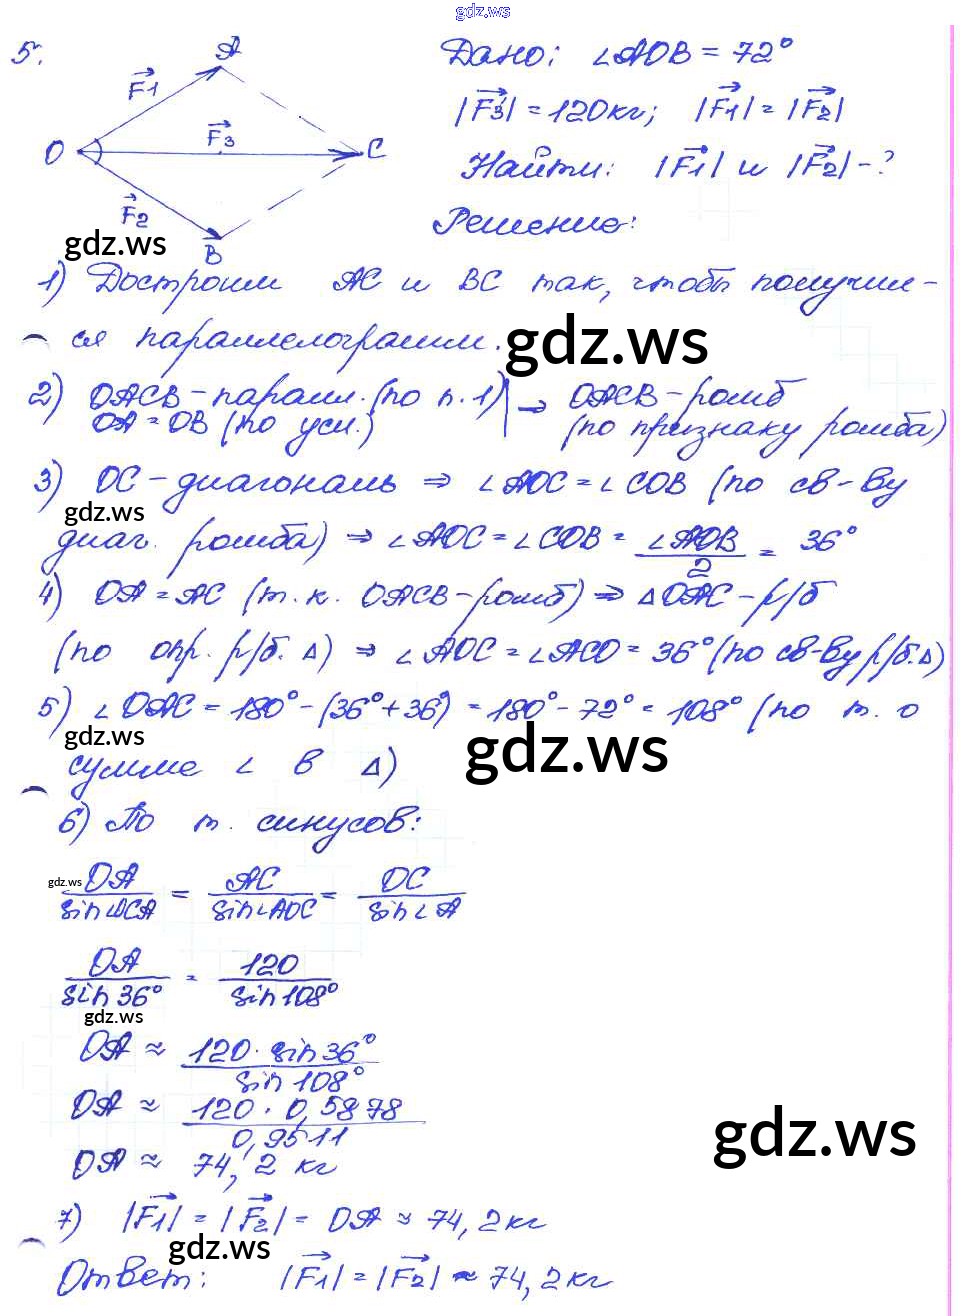 gdz.ws
5.
A
F1
O
F3
C
F2
B
gdz.ws
Дано: ∠AOB = 72°
|F3| = 120кг; |F1| = |F2|
Найти: |F1| и |F2| - ?
Решение:
1) Достроим AC и BC так, чтобы получил-
ся параллелограмм.
gdz.ws
2) OACB - паралл. (по п.1) | ⇒ OACB - ромб
OA = OB (по усл.) (по признаку ромба)
3) OC - диагональ ⇒ ∠AOC = ∠COB (по св-ву
gdz.ws
диаг. ромба) ⇒ ∠AOC = ∠COB = ∠AOB/2 = 36°
4) OA = AC (т.к. OACB - ромб) ⇒ △OAC - р/б
(по опр. р/б. △) ⇒ ∠AOC = ∠ACO = 36° (по св-ву р/б.△)
5) ∠OAC = 180° - (36° + 36°) = 180° - 72° = 108° (по т. о
gdz.ws
gdz.ws
сумме ∠ в △)
6) По т. синусов:
gdz.ws
OA/sin∠OCA = AC/sin∠AOC = OC/sin∠A
OA/sin36° = 120/sin108°
gdz.ws
OA ≈ 120 · sin36°/sin108°
OA ≈ 120 · 0,5878/0,9511
gdz.ws
OA ≈ 74,2 кг
7) |F1| = |F2| = OA ≈ 74,2кг
gdz.ws
Ответ: |F1| = |F2| ≈ 74,2кг